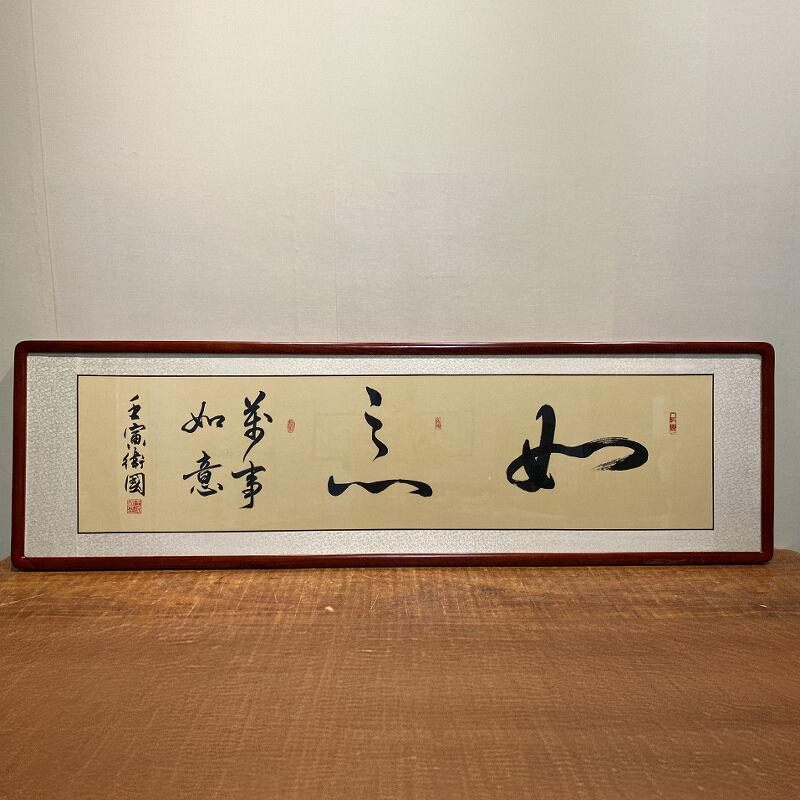 如意
萬事
如意
壬寅衛國